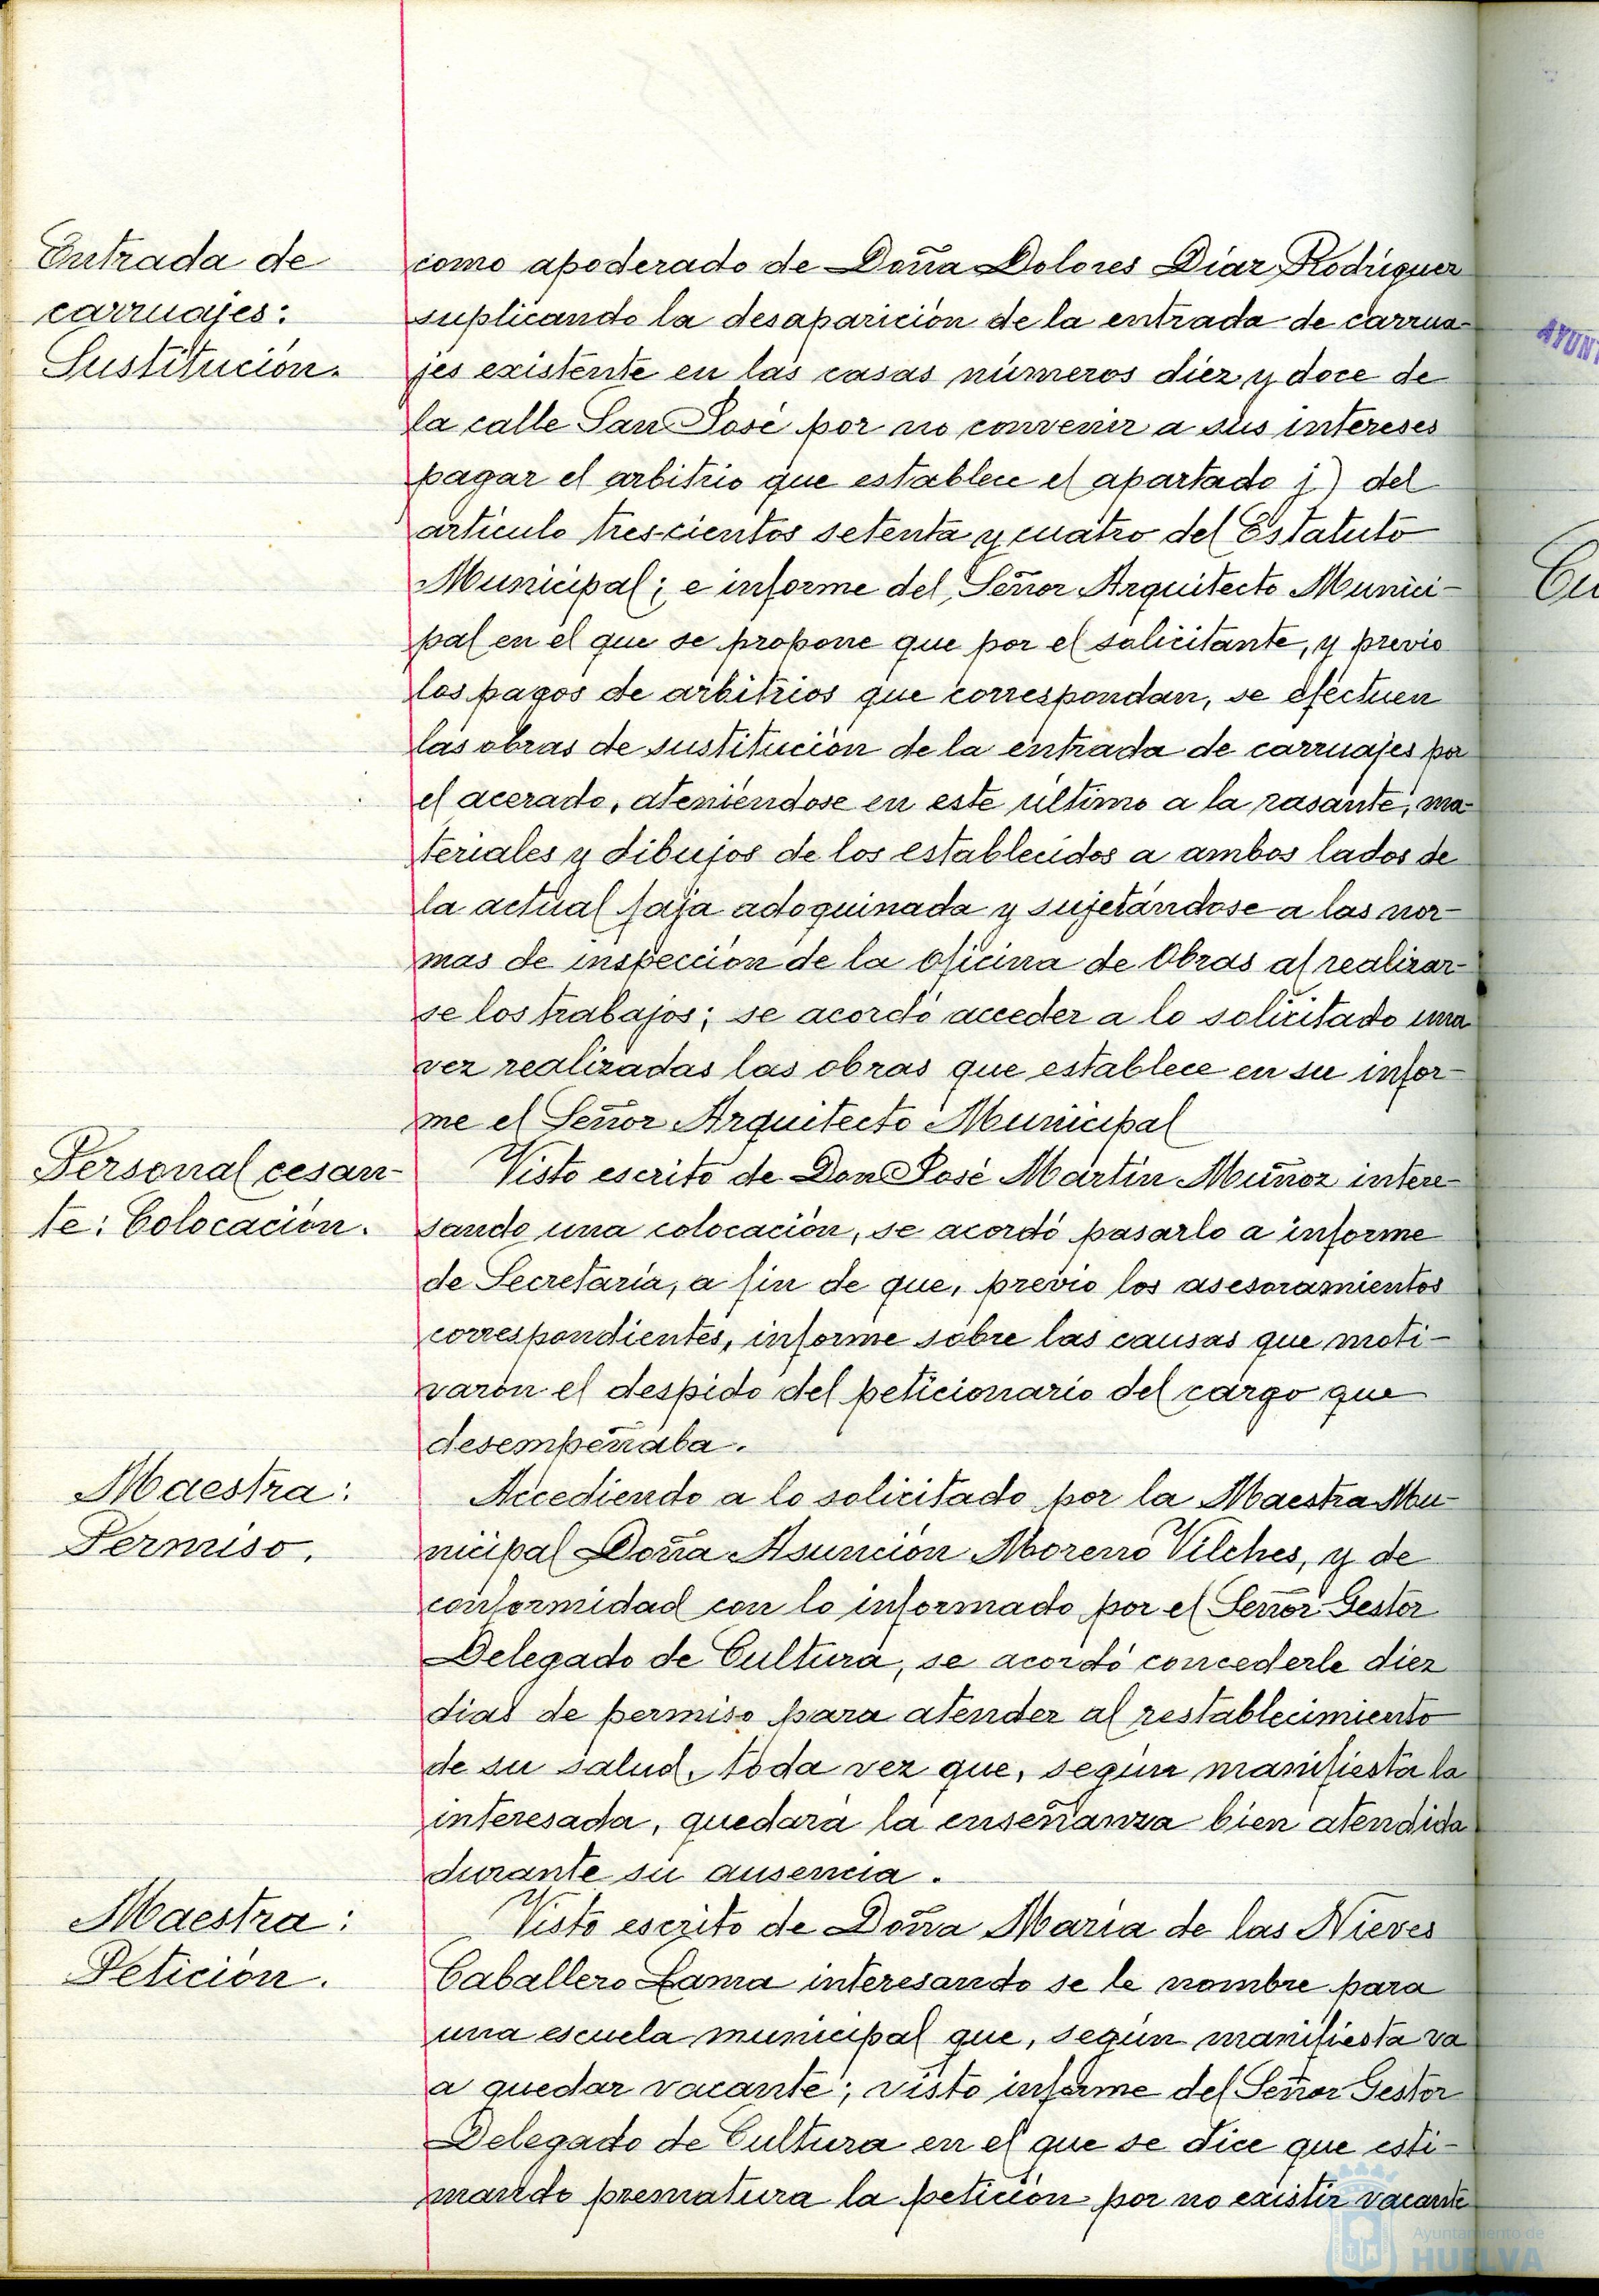 Entrada de
carruajes:
Sustitución.
como apoderado de Doña Dolores Díaz Rodríguez
suplicando la desaparición de la entrada de carrua-
jes existente en las casas números diez y doce de
la calle San José por no convenir a sus intereses
pagar el arbitrio que establece el apartado j) del
artículo trescientos setenta y cuatro del Estatuto
Municipal; e informe del Señor Arquitecto Munici-
pal en el que se propone que por el solicitante, y previo
los pagos de arbitrios que correspondan, se efectuen
las obras de sustitución de la entrada de carruajes por
el acerado, ateniéndose en este último a la rasante, ma-
teriales y dibujos de los establecidos a ambos lados de
la actual faja adoquinada y sujetándose a las nor-
mas de inspección de la oficina de Obras al realizar-
se los trabajos; se acordó acceder a lo solicitado una
vez realizadas las obras que establece en su infor-
me el Señor Arquitecto Municipal
Personal cesan-
te: Colocación.
Visto escrito de Don José Martín Muñoz intere-
sando una colocación, se acordó pasarlo a informe
de Secretaría, a fin de que, previo los asesoramientos
correspondientes, informe sobre las causas que moti-
varon el despido del peticionario del cargo que
desempeñaba.
Maestra:
Permiso.
Accediendo a lo solicitado por la Maestra Mu-
nicipal Doña Asunción Moreno Vilches, y de
conformidad con lo informado por el Señor Gestor
Delegado de Cultura, se acordó concederle diez
dias de permiso para atender al restablecimiento
de su salud, toda vez que, según manifiesta la
interesada, quedará la enseñanza bien atendida
durante su ausencia.
Maestra:
Petición.
Visto escrito de Doña María de las Nieves
Caballero Lama interesando se le nombre para
una escuela municipal que, según manifiesta va
a quedar vacante; visto informe del Señor Gestor
Delegado de Cultura en el que se dice que esti-
mando prematura la petición por no existir vacante
AYUNT
Ayuntamiento de
HUELVA